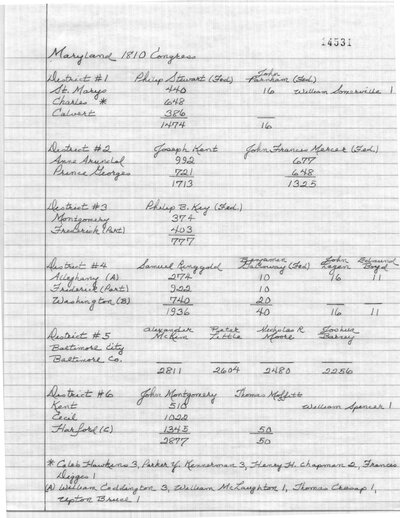 14531
Maryland 1810 Congress
District #1 Philip Stewart (Fed) John Parnham (Fed.)
St. Marys 440 16 William Somerville 1
Charles * 648
Calvert 386
1474 16
District #2 Joseph Kent John Francis Mercer (Fed.)
Anne Arundel 992 677
Prince Georges 721 648
1713 1325
District #3 Philip B. Key (Fed.)
Montgomery 374
Frederick (Part) 403
777
District #4 Samuel Ringgold Benjamin Galloway (Fed) John Edmund Boyd
Alleghany (A) 274 10 16 11
Frederick (Part) 922 10
Washington (B) 740 20
1936 40 16 11
District #5 Alexander McKim Peter Little Nicholas R Moore Joshua Barney
Baltimore City
Baltimore Co.
2811 2604 2480 2256
District #6 John Montgomery Thomas Moffitt
Kent 510 William Spencer 1
Cecil 1022
Harford (C) 1345 50
2877 50
* Caleb Hawkins 3, Parker Y. Kennerman 3, Henry H. Chapman 2, Francis
Digges 1
(A) William Coddington 3, William McLaughton 1, Thomas Cresap 1,
Upton Bruce 1